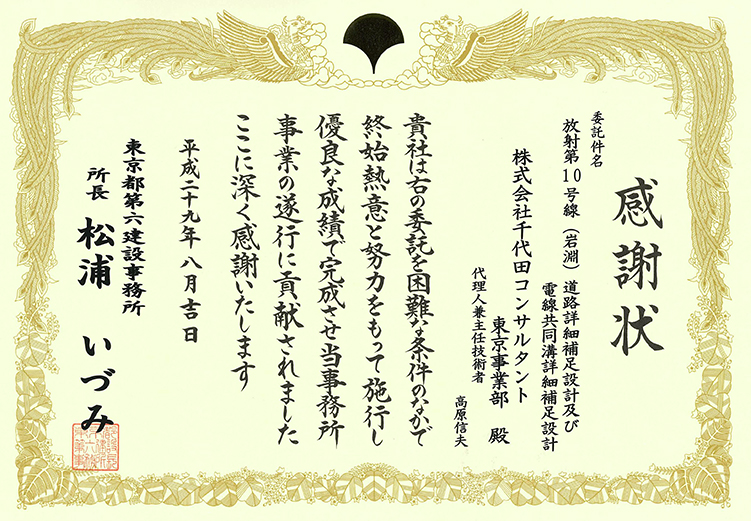 感謝状
委託件名
放射第10号線（岩淵）道路詳細補足設計及び
電線共同溝詳細補足設計
株式会社千代田コンサルタント
東京事業部 殿
代理人兼主任技術者
高原信夫
貴社は右の委託を困難な条件のなかで
終始熱意と努力をもって施行し
優良な成績で完成させ当事務所
事業の遂行に貢献されました
ここに深く感謝いたします
平成二十九年八月吉日
東京都第六建設事務所
所長 松浦 いづみ